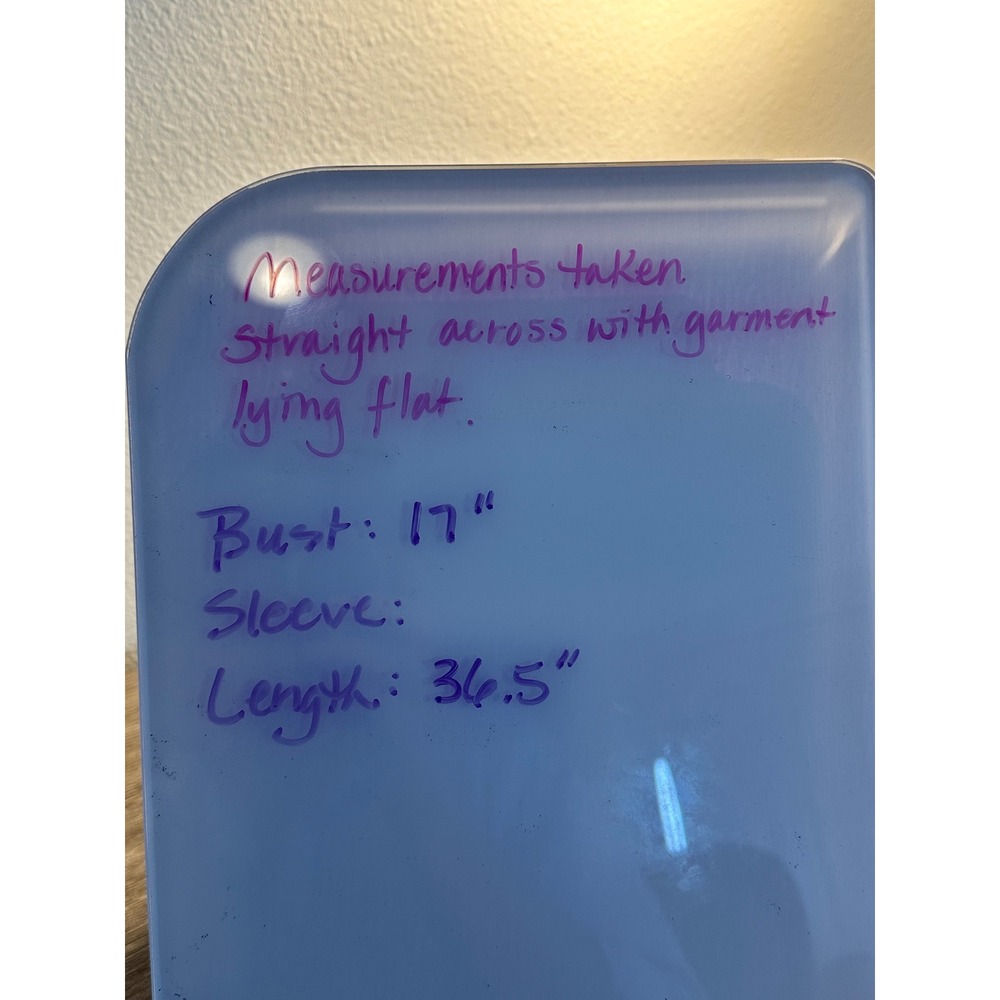 Measurements taken
straight across with garment
lying flat.
Bust: 17"
Sleeve:
Length: 36.5"